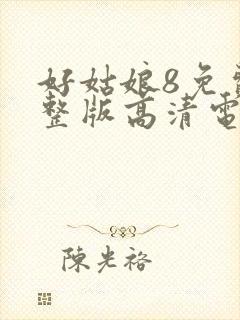 好姑娘8免
整版高清電
陳光裕